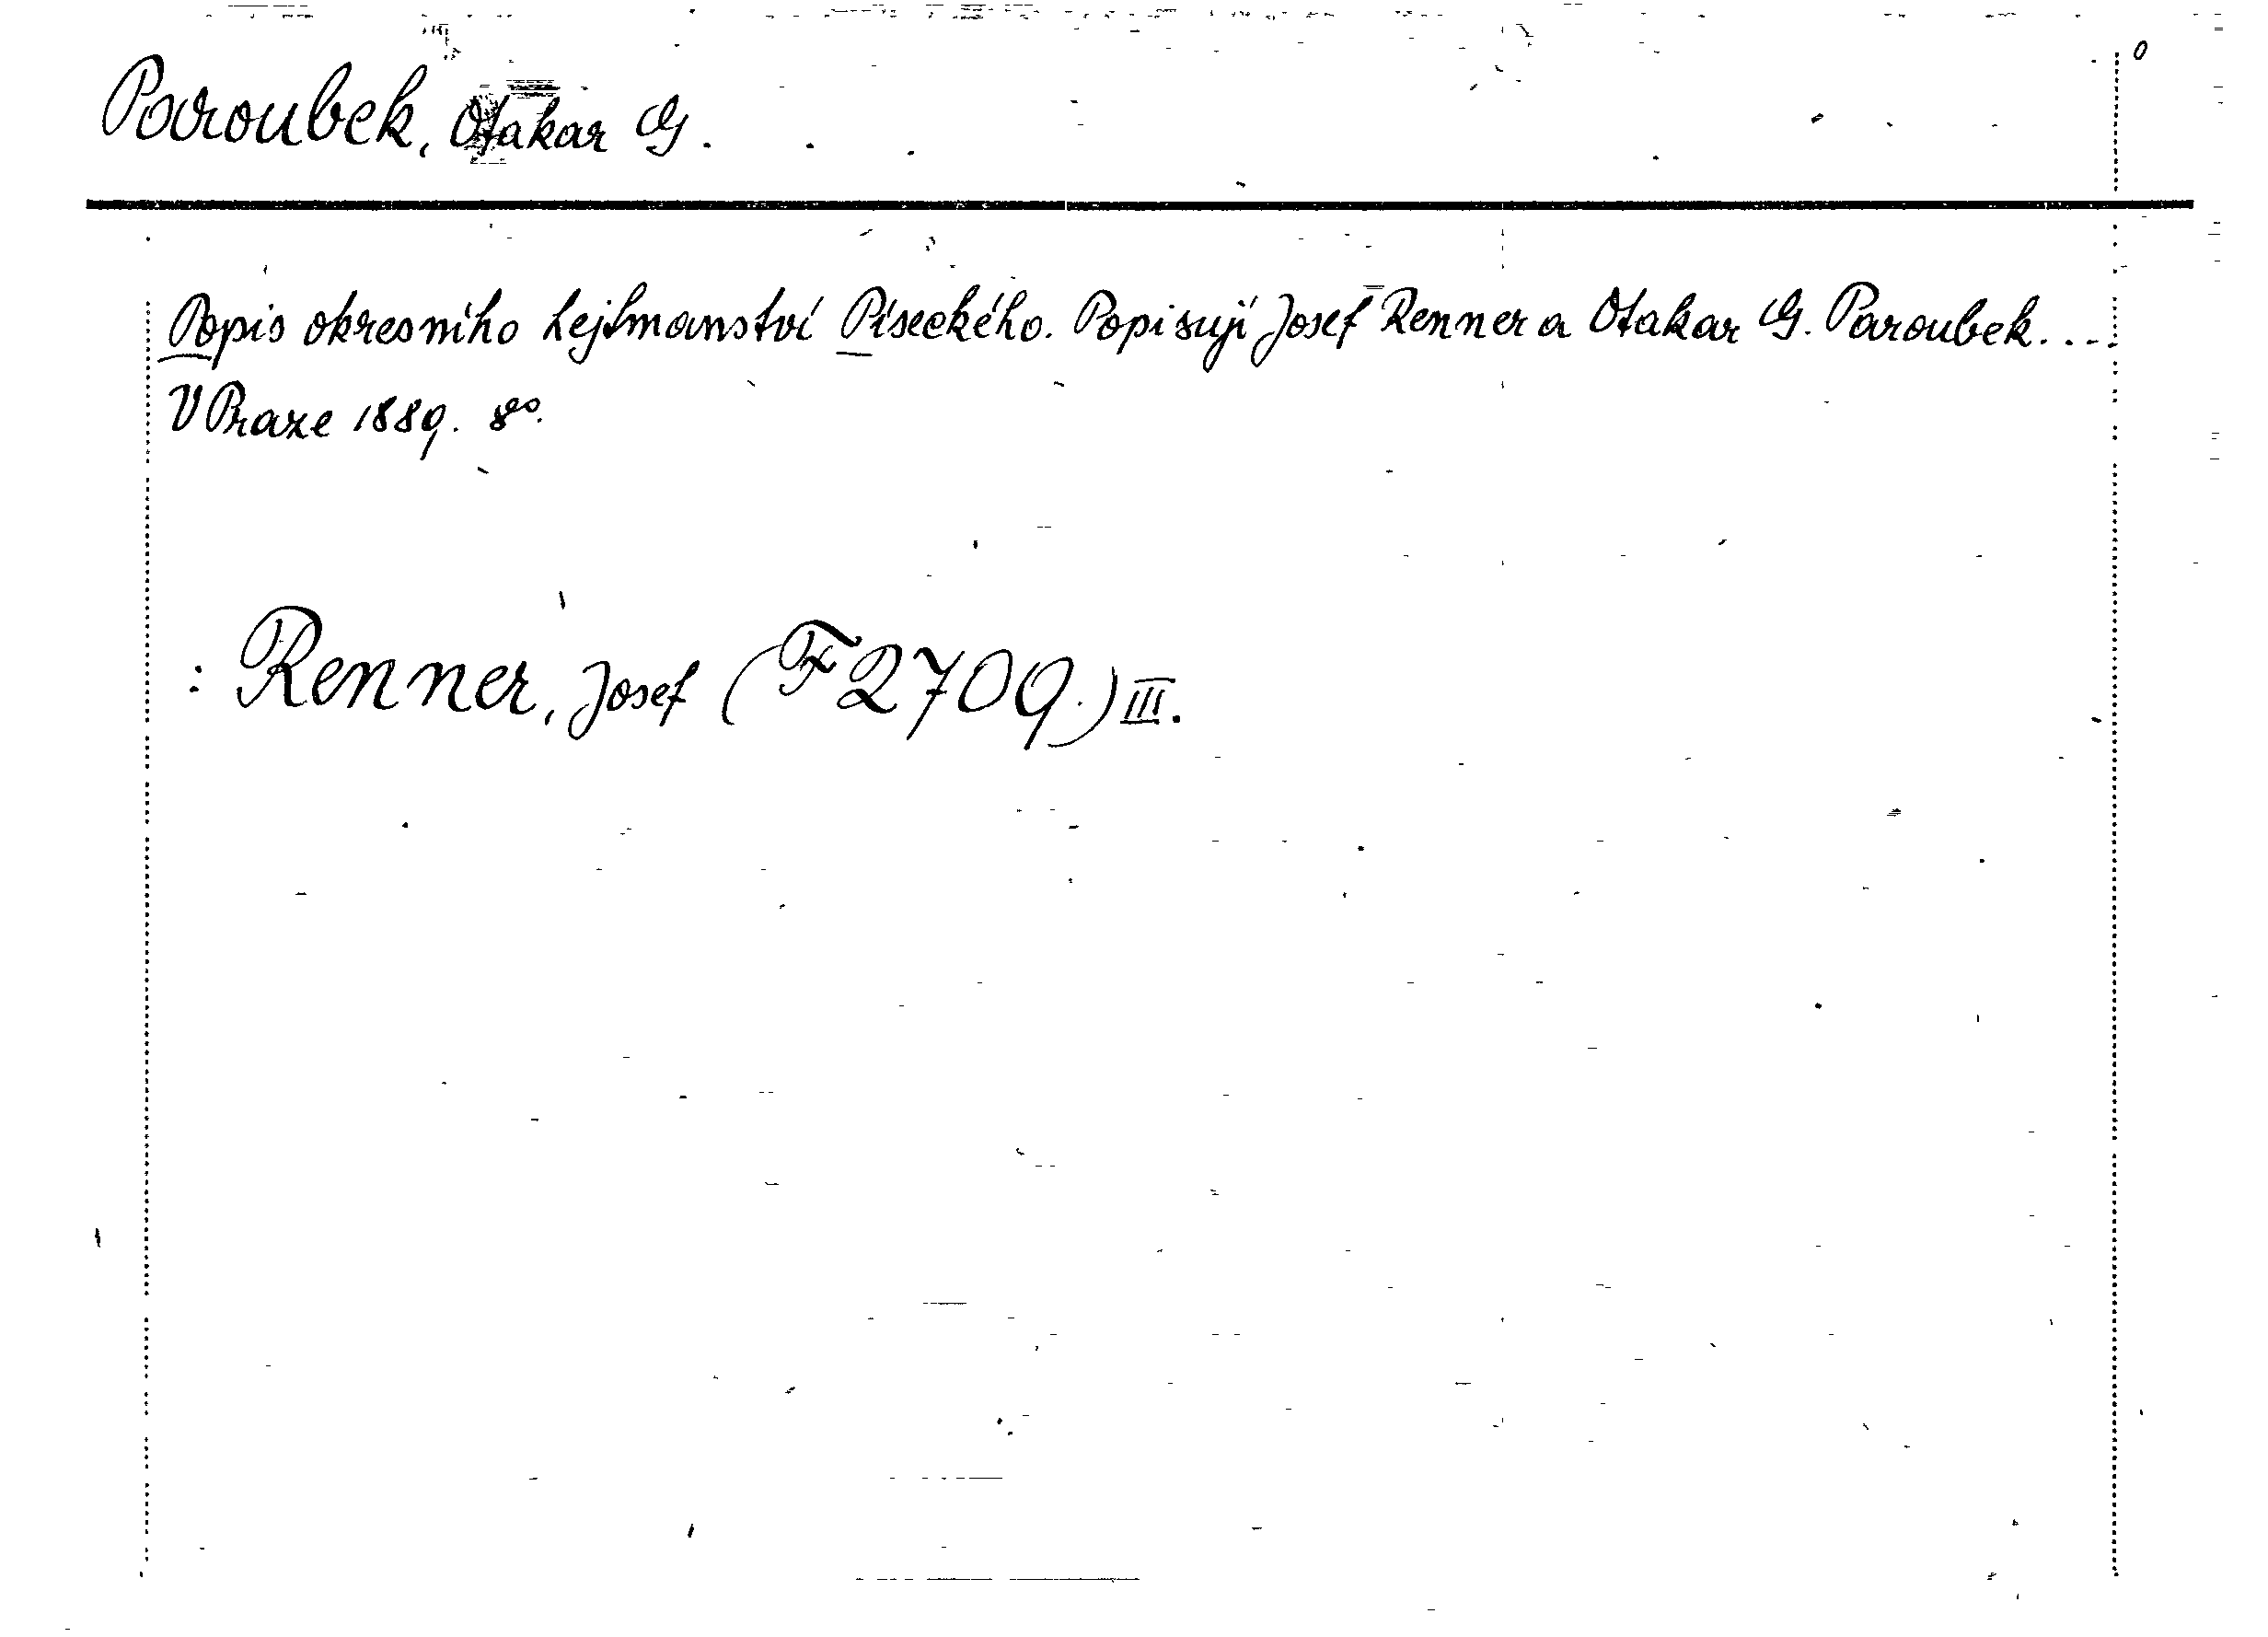 Paroubek, Otakar G.
Popis okresního hejtmanství Píseckého. Popisují Josef Renner a Otakar G. Paroubek....
V Praze 1889. 8º.
: Renner, Josef (F 2709.) III.